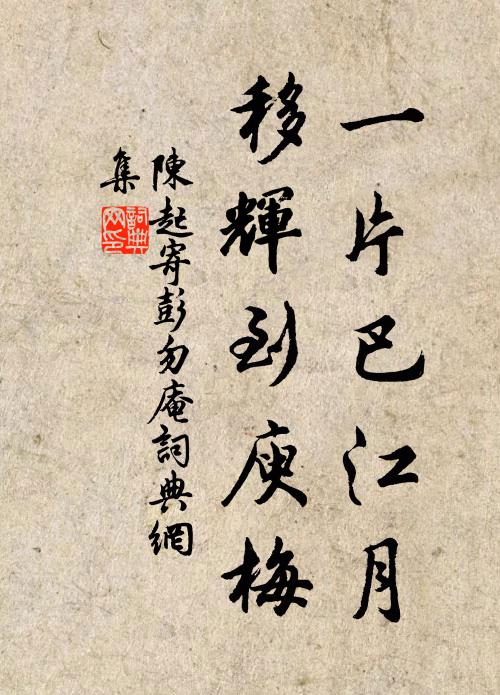 一片巴江月
移輝到庾梅
陳起寄彭勿庵詞典網
集
詞典
网印